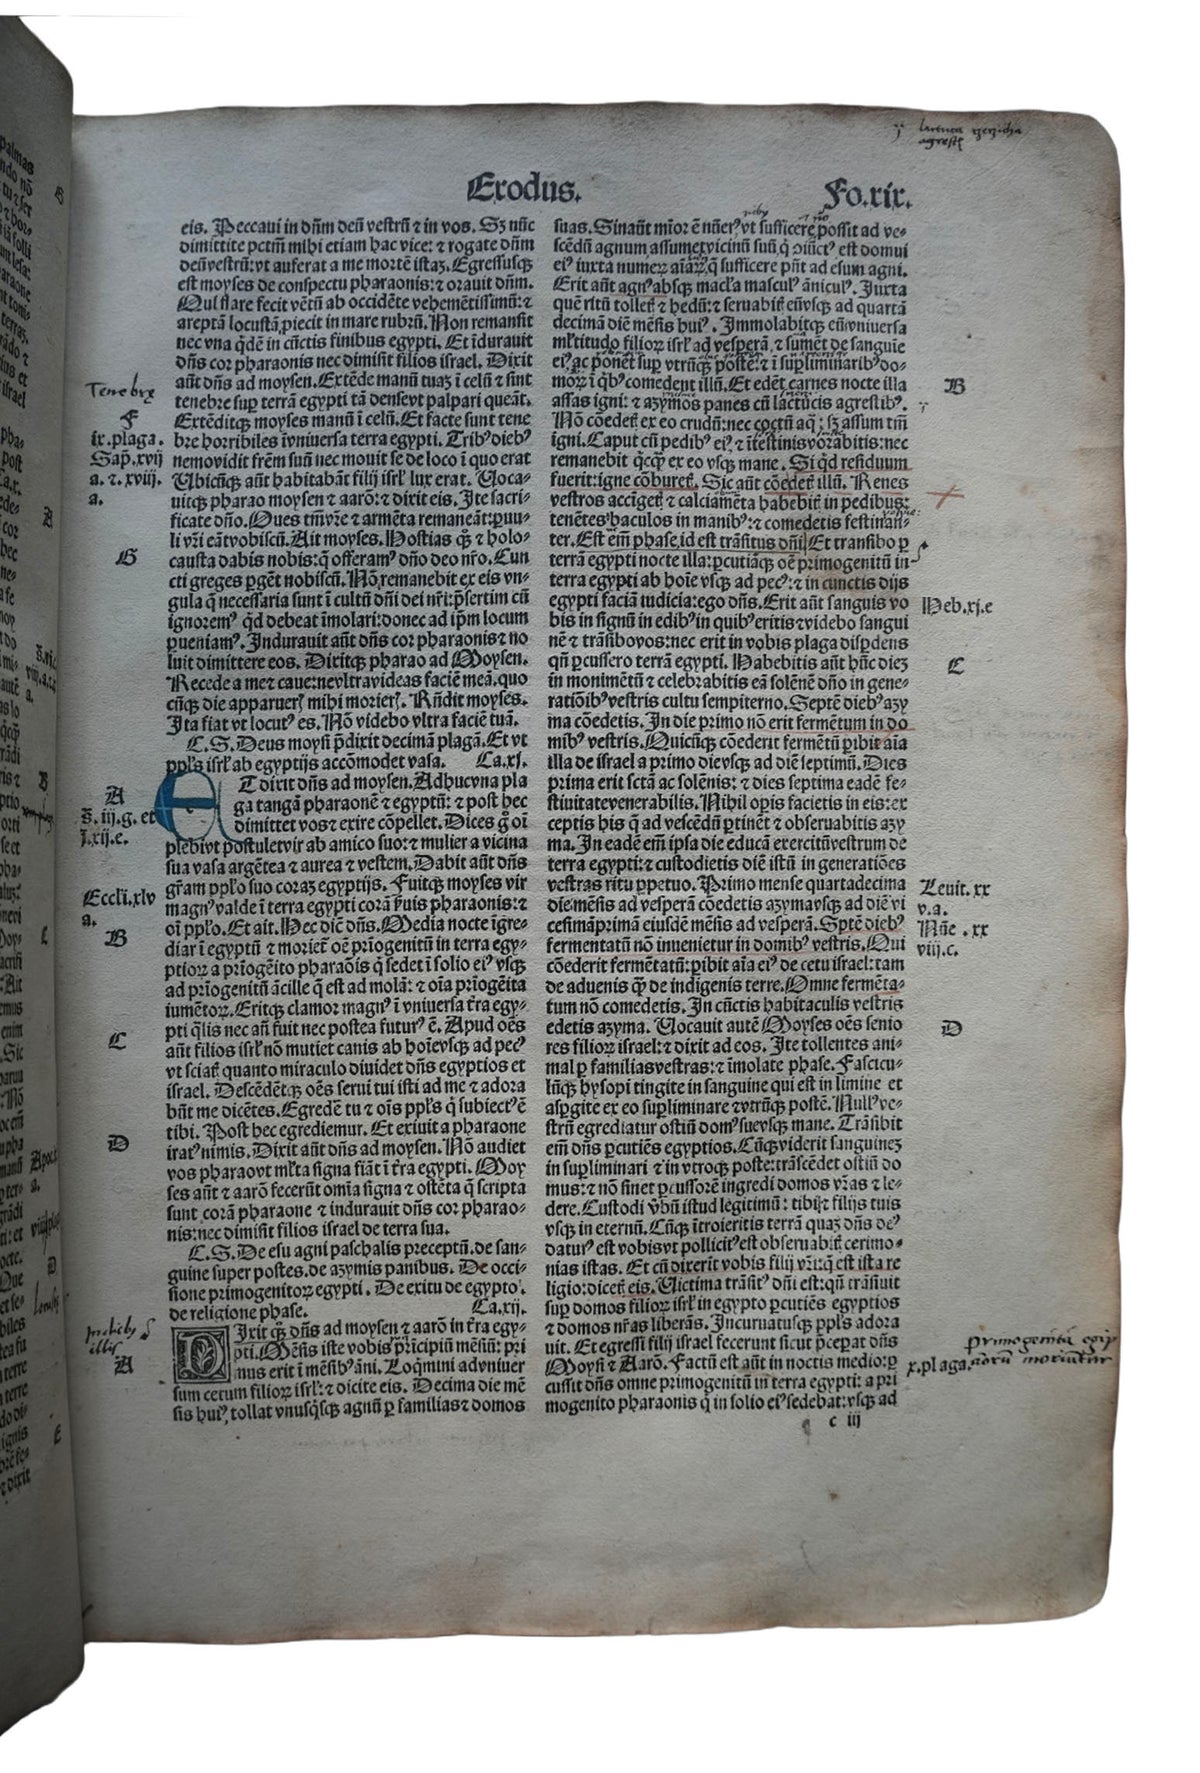 Exodus.
Fo.xix.
eis. Peccaui in dñm deũ vestrũ ⁊ in vos. Sꝫ nũc
dimittite pctm̃ mihi etiam hac vice: ⁊ rogate dñm
deũ vestrũ: vt auferat a me mortẽ istaꝫ. Egressusqꝫ
est moyses de conspectu pharaonis: ⁊ orauit dñm.
Qui flare fecit vẽtũ ab occidẽte vehemẽtissimũ: ⁊
areptã locustã ꝓiecit in mare rubrũ. Non remansit
nec vna q̇dẽ in cũctis finibus egypti. Et ĩdurauit
dñs cor pharaonis nec dimisit filios israel. Dixit
aũt dñs ad moysen. Extẽde manũ tuaꝫ ĩ celũ ⁊ sint
tenebre suꝑ terrã egypti tã dense vt palpari queãt.
Extẽditqꝫ moyses manũ ĩ celũ. Et facte sunt tene
bre horribiles ĩ vniuersa terra egypti. Tribꝰ diebꝰ
nemo vidit frẽm suũ nec mouit se de loco ĩ quo erat
Ubicũqꝫ aũt habitabãt filij isrl̃ lux erat. Uoca-
uitqꝫ pharao moysen ⁊ aarõ: ⁊ dixit eis. Ite sacri-
ficate dño. Oues tm̃ vr̃e ⁊ armẽta remaneãt: ꝑuu-
li vr̃i eãt vobiscũ. Ait moyses. Hostias qꝫ ⁊ holo-
causta dabis nobis: q̃ offeramꝰ dño deo nr̃o. Cun
cti greges ꝑgẽt nobiscũ. Nõ remanebit ex eis vn-
gula q̃ necessaria sunt ĩ cultũ dñi dei nr̃i: p̃sertim cũ
ignoremꝰ qd̃ debeat ĩmolari: donec ad ip̃m locum
ꝑueniamꝰ. Indurauit aũt dñs cor pharaonis ⁊ no
luit dimittere eos. Dixitqꝫ pharao ad Moysen.
Recede a me ⁊ caue: ne vltra videas faciẽ meã. quo
cũqꝫ die apparuerꝭ mihi morierꝭ. Rñdit moyses.
Ita fiat vt locutꝰ es. Nõ videbo vltra faciẽ tuã.
C.S. Deus moysi p̃dixit decimã plagã. Et vt
ppl̃s isrl̃ ab egyptijs accõmodet vasa. Ca.xj.
Et dixit dñs ad moysen. Adhuc vna pla
ga tangã pharaonẽ ⁊ egyptũ: ⁊ post hec
dimittet vos ⁊ exire cõpellet. Dices g̊ oĩ
plebi vt postulet vir ab amico suo: ⁊ mulier a vicina
sua vasa argẽtea ⁊ aurea ⁊ vestem. Dabit aũt dñs
gr̃am ppl̃o suo coraꝫ egyptijs. Fuitqꝫ moyses vir
magnꝰ valde ĩ terra egypti corã ꝑuis pharaonis: ⁊
oĩ ppl̃o. Et ait. Hec dic̃ dñs. Media nocte ĩgre-
diar ĩ egyptũ ⁊ morieť oẽ pr̃iogenitũ in terra egy-
ptioꝝ a pr̃iogẽito pharaõis q̃ sedet ĩ solio eiꝰ vsqꝫ
ad pr̃iogenitũ ãcille q̃ est ad molã: ⁊ oĩa pr̃iogẽita
iumẽtoꝝ. Eritqꝫ clamor magnꝰ ĩ vniuersa t̃ra egy-
pti q̃lis nec añ fuit nec postea futurꝰ ẽ. Apud oẽs
aũt filios isrl̃ nõ mutiet canis ab hoĩe vsqꝫ ad pecꝰ
vt sciatꝭ quanto miraculo diuidet dñs egyptios et
israel. Descẽdẽtqꝫ oẽs serui tui isti ad me ⁊ adora
bũt me dicẽtes. Egredẽ tu ⁊ oĩs ppl̃s q̃ subiectꝰ ẽ
tibi. Post hec egrediemur. Et exiuit a pharaone
iratꝰ nimis. Dixit aũt dñs ad moysen. Nõ audiet
vos pharao vt ml̃ta signa fiãt ĩ t̃ra egypti. Moy
ses aũt ⁊ aarõ fecerũt om̃ia signa ⁊ ostẽta q̃ scripta
sunt corã pharaone ⁊ indurauit dñs cor pharao-
nis: nec dimisit filios israel de terra sua.
C.S. De esu agni paschalis preceptũ. de san-
guine super postes. de azymis panibus. De occi-
sione primogenitoꝝ egypti. De exitu de egypto.
de religione phase. Ca.xij.
Dixit qꝫ dñs ad moysen ⁊ aarõ in t̃ra egy-
pti. Mẽsis iste vobis pr̃icipiũ mẽsiũ: pri
mus erit ĩ mẽsibꝰ ãni. Loq̃mini ad vniuer
sum cetum filioꝝ isrl̃: ⁊ dicite eis. Decima die mẽ
sis huiꝰ, tollat vnusq̃sqꝫ agnũ ꝑ familias ⁊ domos
suas. Sin aũt mĩor ẽ nũerꝰ vt sufficere possit ad ve-
scẽdũ agnum, assumet vicinũ suũ, q̃ ꝯiũctꝰ est domui
eiꝰ iuxta numeꝝ aĩaꝝ q̃ sufficere pñt ad esum agni.
Erit aũt agnꝰ absqꝫ macl̃a masculꝰ ãniculꝰ. Iuxta
quẽ ritũ tolletꝭ ⁊ hedũ: ⁊ seruabitꝭ eũ vsqꝫ ad quartã
decimã diẽ mẽsis huiꝰ. Immolabitqꝫ eũ vniuersa
ml̃titudo filioꝝ isrl̃ ad vesperã, ⁊ sument de sanguie
eiꝰ, ac ponẽt suꝑ vtrũqꝫ postẽ: ⁊ ĩ suꝑliminaribꝰ do-
moꝝ ĩ q̃bꝰ comedent illũ. Et edẽt carnes nocte illa
assas igni: ⁊ azymos panes cũ lactucis agrestibꝰ.
Nõ cõedetꝭ ex eo crudũ: nec coctũ aq̃: sꝫ assum tm̃
igni. Caput cũ pedibꝰ eiꝰ, ⁊ ĩtestinis vorabitis: nec
remanebit q̃cqꝫ ex eo vsqꝫ mane. Si q̇d residuum
fuerit: igne cõburetꝭ. Sic aũt cõedetꝭ illũ. Renes
vestros accĩgetꝭ ⁊ calciamẽta habebitꝭ in pedibus:
tenẽtes baculos in manibꝰ: ⁊ comedetis festinan-
ter. Est em̃ phase, id est trãsitus dñi. Et transibo ꝑ
terrã egypti nocte illa: ꝑcutiãqꝫ oẽ primogenitũ in
terra egypti ab hoĩe vsqꝫ ad pecꝰ: ⁊ in cunctis dijs
egypti faciã iudicia: ego dñs. Erit aũt sanguis vo
bis in signũ in edibꝰ in quibꝰ eritis ⁊ videbo sangui
nẽ ⁊ trãsibo vos: nec erit in vobis plaga disꝑdens
qñ ꝑcussero terrã egypti. Habebitis aũt hũc dieꝫ
in monimẽtũ ⁊ celebrabitis eã solẽnẽ dño in gene-
ratiõibꝰ vestris cultu sempiterno. Septẽ diebꝰ azy
ma cõedetis. In die primo nõ erit fermẽtum in do
mibꝰ vestris. Quicũqꝫ cõederit fermẽtũ ꝑibit aĩa
illa de israel a primo die vsqꝫ ad diẽ septimũ. Dies
prima erit sctã ac solẽnis: ⁊ dies septima eadẽ fe-
stiuitate venerabilis. Nihil oꝑis facietis in eis: ex
ceptis his q̃ ad vescẽdũ ꝑtinẽt ⁊ obseruabitis azy
ma. In eadẽ em̃ ipsa die educã exercitũ vestrum de
terra egypti: ⁊ custodietis diẽ istũ in generatiões
vestras ritu ꝑpetuo. Primo mense quartadecima
die mẽsis ad vesperã cõedetis azyma vsqꝫ ad diẽ vi
cesimã primã eiusdẽ mẽsis ad vesperã. Septẽ diebꝰ
fermentatũ nõ inuenietur in domibꝰ vestris. Qui
cõederit fermẽtatũ: ꝑibit aĩa eiꝰ de cetu israel: tam
de aduenis qꝫ de indigenis terre. Omne fermẽta-
tum nõ comedetis. In cũctis habitaculis vestris
edetis azyma. Uocauit autẽ Moyses oẽs senio
res filioꝝ israel: ⁊ dixit ad eos. Ite tollentes ani-
mal ꝑ familias vestras: ⁊ ĩmolate phase. Fascicu-
lũqꝫ hysopi tingite in sanguine qui est in limine et
asꝑgite ex eo suꝑliminare ⁊ vtrũqꝫ postẽ. Nullꝰ ve-
strũ egrediatur ostiũ domꝰ sue vsqꝫ mane. Trãsibit
em̃ dñs ꝑcutiẽs egyptios. Cũqꝫ viderit sanguineꝫ
in suꝑliminari ⁊ in vtroqꝫ poste: trãscẽdet ostiũ do
mus: ⁊ nõ sinet ꝑcussorẽ ingredi domos vr̃as ⁊ le-
dere. Custodi v̓bũ istud legitimũ: tibi ⁊ filijs tuis
vsqꝫ in eternũ. Cũqꝫ ĩtroieritis terrã quaꝫ dñs deꝰ
daturꝰ est vobis vt pollicitꝰ est obseruabitꝭ cerimo-
nias istas. Et cũ dixerit vobis filij vr̃i: q̃ est ista re
ligio: dicetꝭ eis. Uictima trãsitꝰ dñi est: qñ trãsiuit
suꝑ domos filioꝝ isrl̃ in egypto ꝑcutiẽs egyptios
⁊ domos nr̃as liberãs. Incuruatusqꝫ ppl̃s adora
uit. Et egressi filij israel fecerunt sicut p̃ceꝑat dñs
Moysi ⁊ Aarõ. Factũ est aũt in noctis medio: ꝑ
cussit dñs omne primogenitũ in terra egypti: a pri
mogenito pharaonis q̃ in solio eiꝰ sedebat: vsqꝫ ad
c iij
Tenebrę
F
ix.plaga.
Sap̃.xvij
a.⁊.xviij.
a.
G
A
s̃.iij.g.et
j.xij.e.
Eccli.xlv
a.
B
C
D
A
B
Heb.xj.e
C
Leuit.xx
v.a.
Nũe.xx
viij.c.
D
primogenita egip
tiorũ moriuntur
x.plaga.